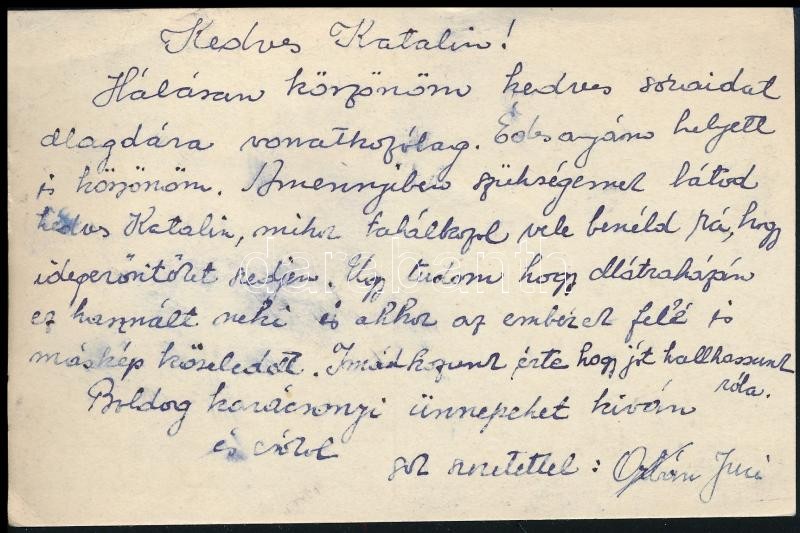 Kedves Katalin!
Hálásan köszönöm kedves soraidat
Magdára vonatkozólag. Édesanyám helyett
is köszönöm. Amennyiben szükségesnek látod
kedves Katalin, mikor találkozol vele beszéld rá, hogy
idegerősítőket szedjen. Úgy tudom hogy Mátraházán
ez használt neki is akkor az emberek felé is
máskép közeledett. Imádkozunk érte hogy jót hallhassunk
róla.
Boldog karácsonyi ünnepeket kíván
és csókol
sok szeretettel: Juci
darabanth